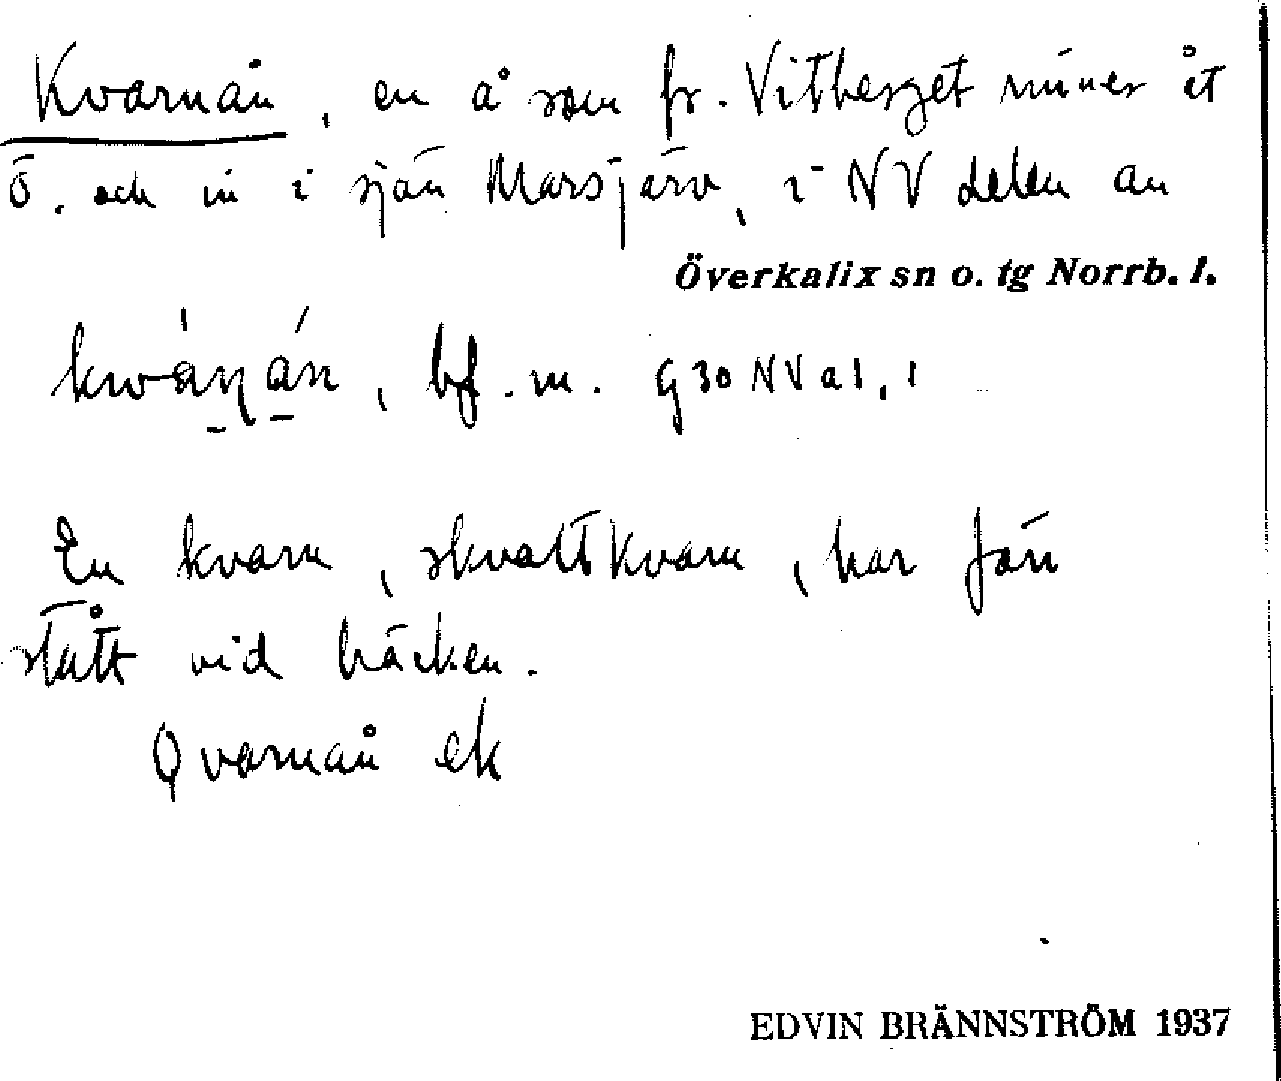 Kvarnån, en å som fr. Vitberget rinner åt
ö. och in i sjön Marsjärv, i NV delen av
Överkalix sn o. tg Norrb. l.
kwáṇán, bf. m. G 30 NV a 1, 1
En kvarn, skvaltkvarn, har förr
stått vid bäcken.
Qvarnån ek
EDVIN BRÄNNSTRÖM 1937